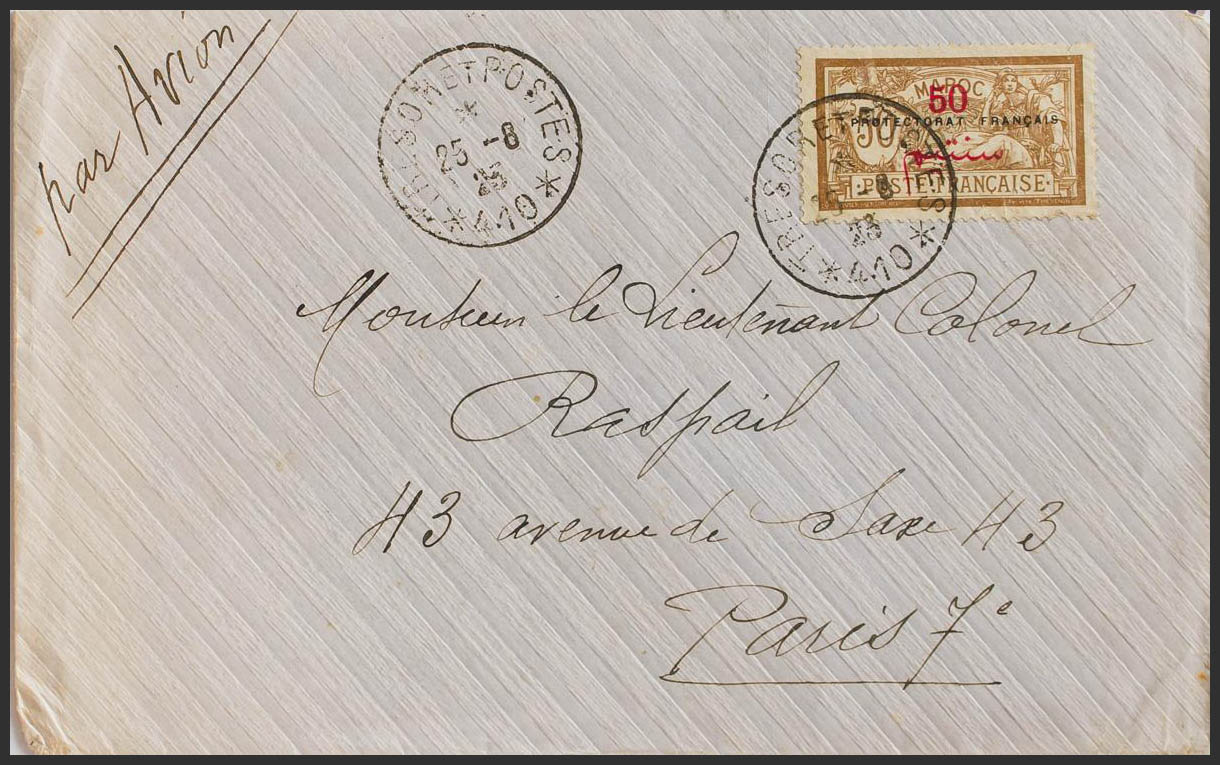 par Avion
TRESOR ET POSTES
*
25 -8
23
*410*
MAROC
50
50
PROTECTORAT FRANÇAIS
سنتيم
POSTE FRANÇAISE
TRESOR ET POSTES
-8
23
*410*
Monsieur le Lieutenant Colonel
Raspail
43 avenue de Saxe 43
Paris 7e